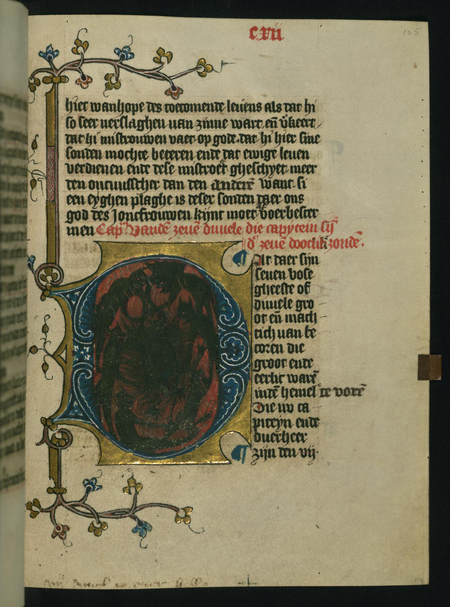 cxij
125
hiet wanhope des toecomende levens als dat hi
so seer verslaghen van zinne wart. en̄ v̄keert
dat hi mistrouwen daer op gode. dat hi hier sine
sonden mochte beteren ende dat ewige leuen
verdienen ende dese mistroest gheschyet meer
den ontwisscher dan den anderē want si
een eyghen plaghe is deser sonden daer ons
god des Joncfrouwen kijnt moet voerbester
men Cap̄ Vandē zeuē duuele die capytein sij
d' zeuē dootlikē zondē.
At daer sijn
seuen bose
gheeste of
duuele gro
ot en̄ mach
tich uan be
coren die
groot ende
eerlic warē
indē hemel te vorē
Die nv ca
piteyn ende
ouerheer
zijn den vij.